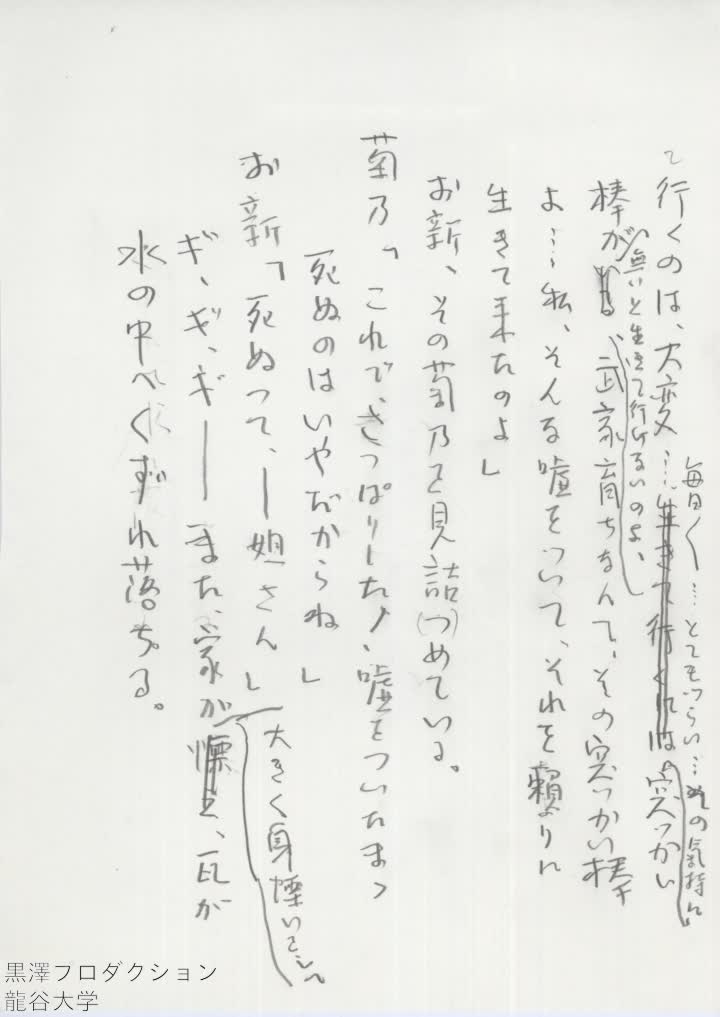 て行くのは、大変……生きて行くには。突っかい
毎日〱…とてもつらい…その気持に
棒がある、武家育ちなんて、その突っかい棒
無いと生きて行けないのよ、
よ……私、そんな嘘をついて、それを頼りに
生きて来たのよ」
お新、その菊乃を見詰(つ)めている。
菊乃「これで、さっぱりした、嘘をついたまゝ
死ぬのはいやだからね」
お新「死ぬって、―姐さん」
ギ、ギ、ギ――また、家が慄え、瓦が
大きく身慄いして
水の中へくずれ落ちる。
黒澤プロダクション
龍谷大学